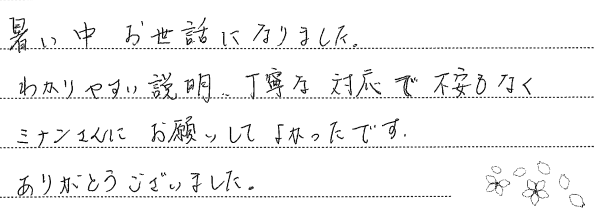 暑い中 お世話になりました。
わかりやすい説明、丁寧な対応で不安もなく
ミナンさんに お願いしてよかったです.
ありがとうございました。